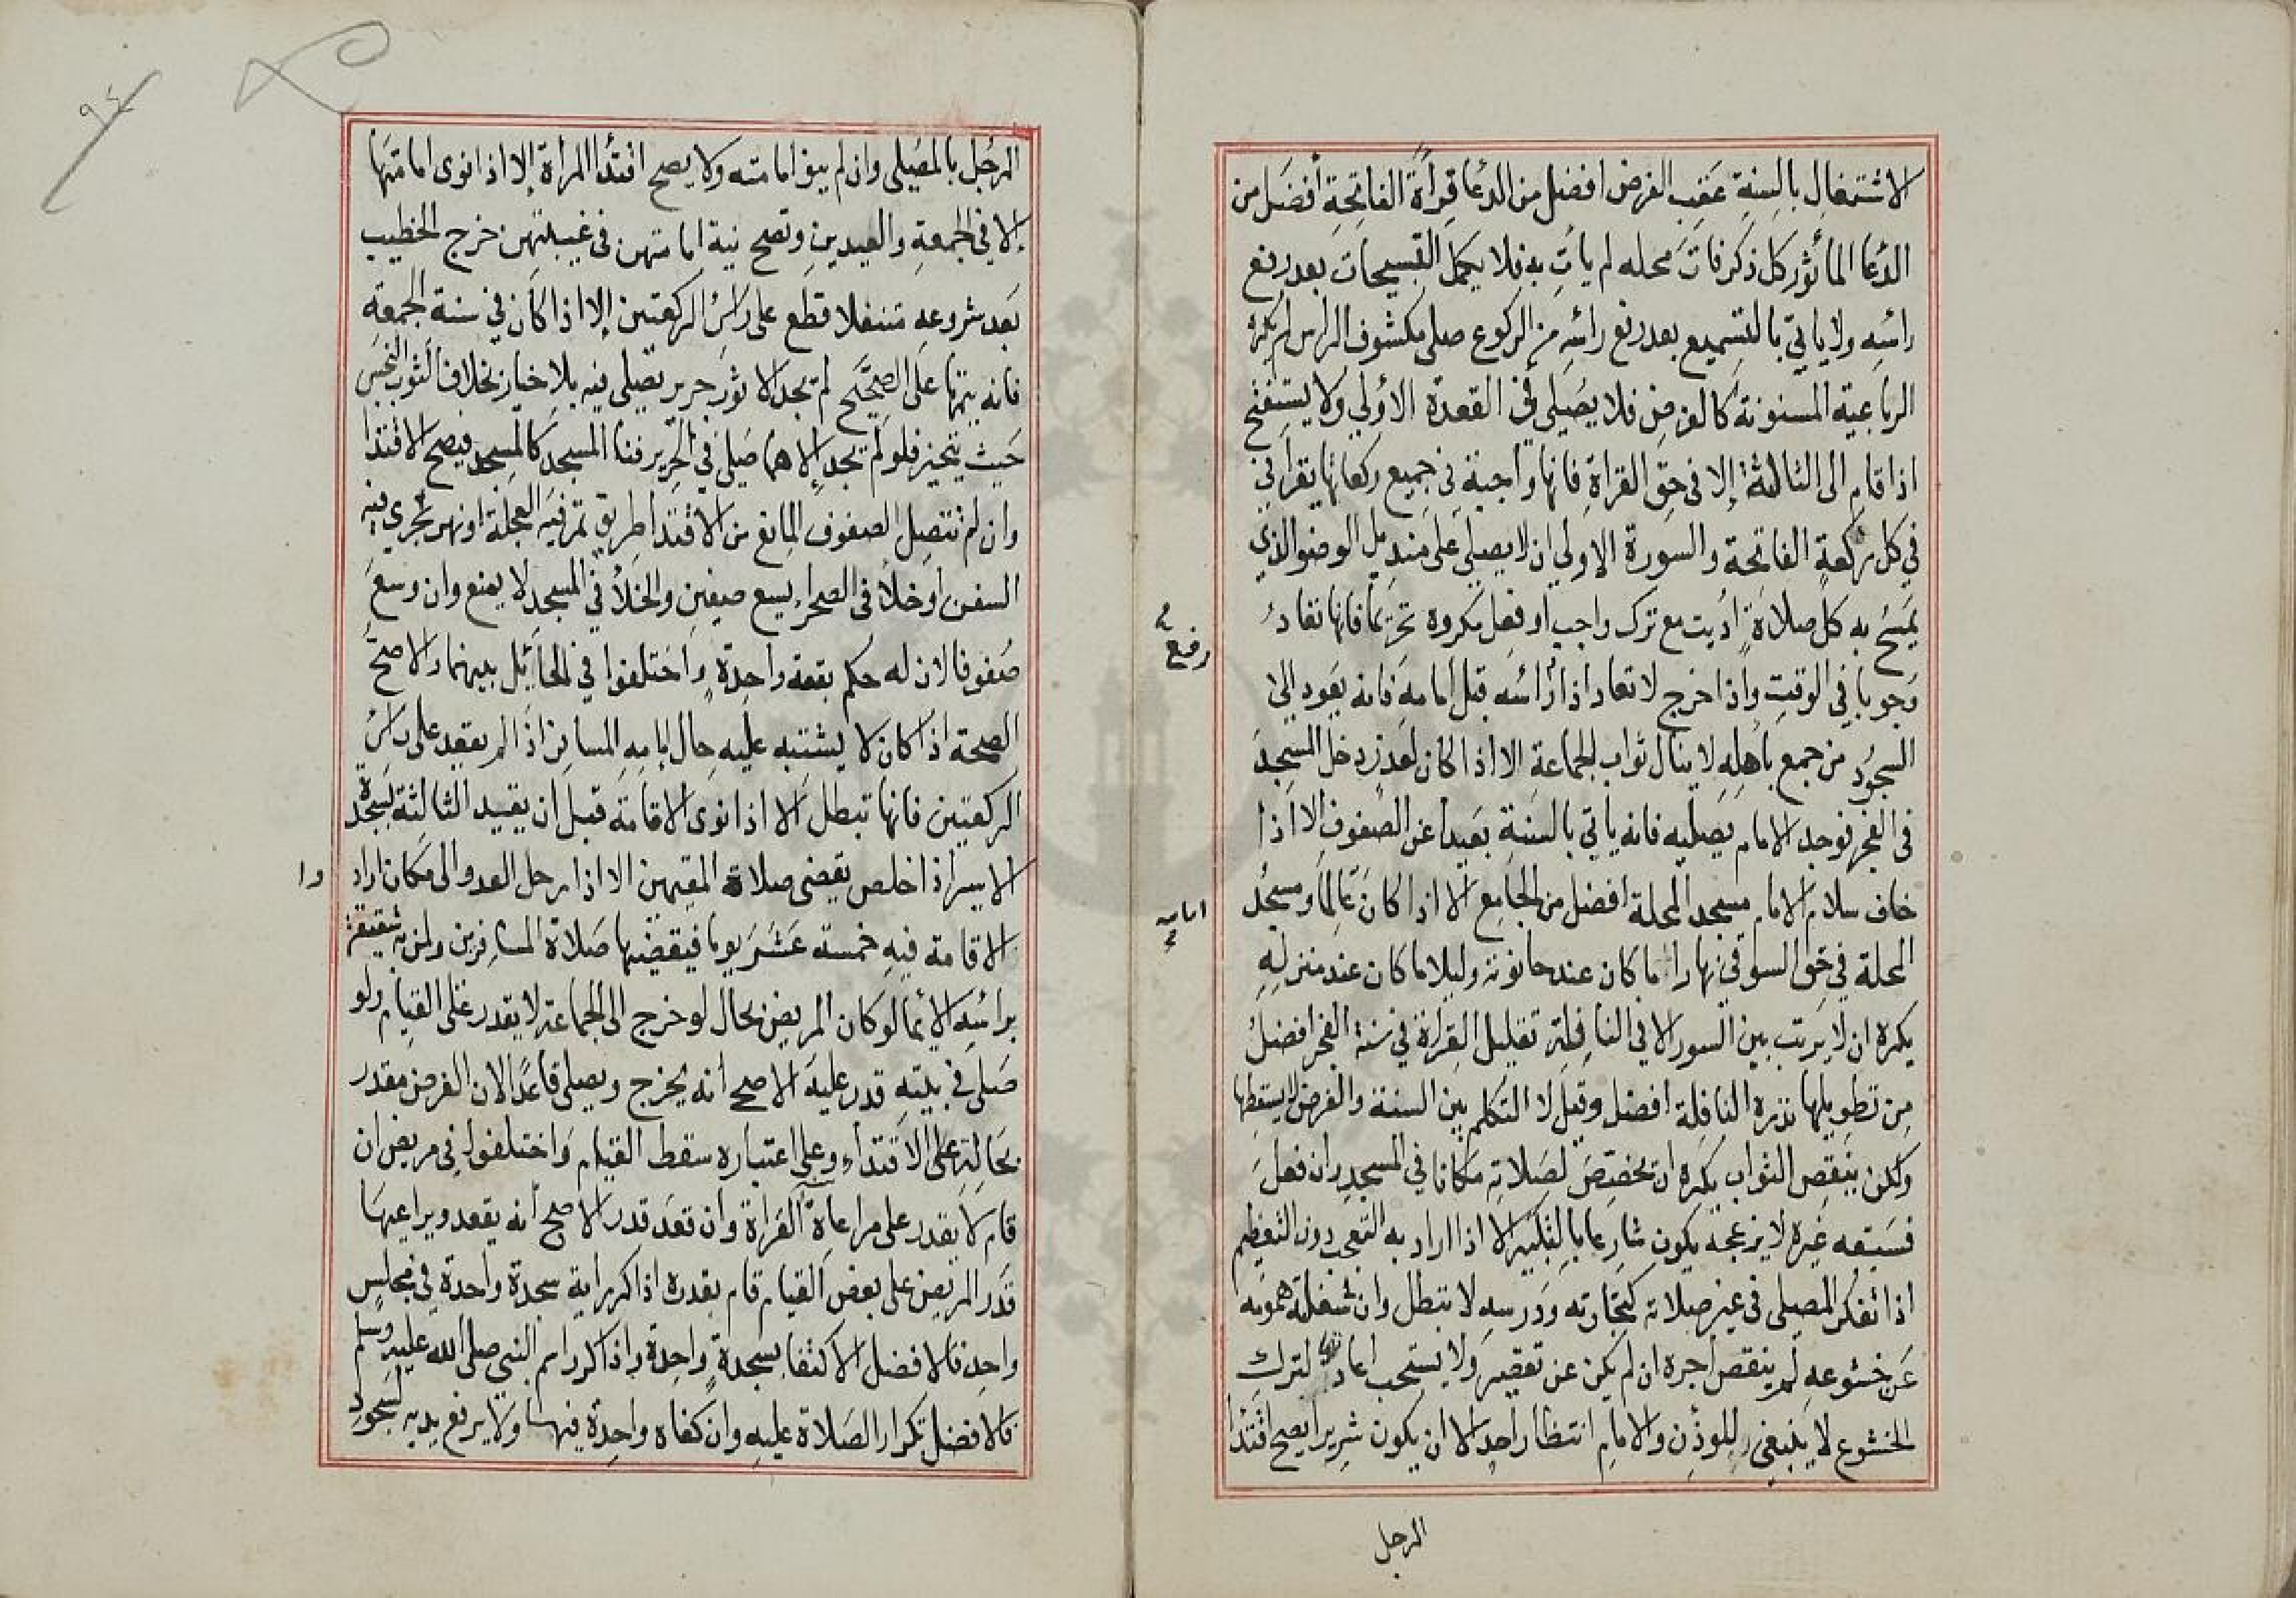 الاشتغال بالسنة عقب الفرض افضل من الدعا قراة الفاتحة أفضل من
الدعا المأثور كل ذكر فات محله لم يات به فلا يكمل التسبيحات بعد رفع
رائسه ولا ياتي بالتسميع بعد رفع رائسه من الركوع صلى مكشوف الراس لم يكره
الرباعية المسنونة كالفرض فلا يصلى في القعدة الاولي ولا يستفتح
اذا قام الى الثالثة إلا فى حق القراة فانها واجبة في جميع ركعاتها يقرا في
في كل ركعة الفاتحة والسورة الاولي ان لا يصلي على منديل الوضو الذي
يمسح به كل صلاة اديت مع ترك واجب او فعل مكروه تحريما فانها تعاد
وجوبا في الوقت واذا خرج لا تعاد اذا رائسه قبل امامه فانه يعود الى
رفع
السجود من جمع باهله لا ينال ثواب الجماعة الا اذا كان لعذر دخل المسجد
فى الفجر فوجد الامام يصليه فانه ياتي بالسنة بعيدا عن الصفوف الا اذا
خاف سلام الامام مسجد المحلة افضل من الجامع الا اذا كان عالما ومسجد
امامه
المحلة في حق السوقي نهارا ما كان عند حانوته وليلا ما كان عند منزله
يكره ان لا يرتب بين السور الا في النافلة تقليل القراة في سنة الفجر افضل
من تطويلها نذره النافلة افضل وقيل لا التكلم بين السنة والفرض لا يسقطها
ولكن ينقص الثواب يكره ان يخصص لصلاته مكانا في المسجد وان فعل
فسبقه غيره لا يزعجه يكون شارعا بالتكبير الا اذا اراد به التعجب دون التعظيم
اذا تفكر المصلى فى غير صلاته كتجارته ودرسه لا تبطل وان شغلته همومه
عن خشوعه لم ينقص اجره ان لم يكن عن تقصير ولا يستحب اعادتها لترك
الخشوع لا ينبغي للموذن والامام انتظار احد الا ان يكون شريرا يصح اقتدا
الرجل
٩٤
الرجل بالمصلى وان لم ينو امامته ولا يصح اقتدأ المرأة إلا اذا نوى امامتها
إلا في الجمعة والعيدين وتصح نية امامتهن فى غيبتهن خرج الخطيب
بعد شروعه متنفلا قطع على رائس الركعتين إلا اذا كان في سنة الجمعة
فانه يتمها على الصحيح لم يجد الا ثوب حرير يصلى فيه بلا خيار بخلاف الثوب النجس
حيث يتخير فلو لم يجد إلا هما صلى في الحرير فنا المسجد كالمسجد فيصح الاقتدا
وان لم تتصل الصفوف المانع من الاقتدا طريق تمر فيه العجلة او نهر تجري فيه
السفن أو خلا فى الصحراء يسع صفين والخلأ في المسجد لا يمنع وان وسع
صفوفا لان له حكم بقعة واحدة واختلفوا في الحائيل بينهما والاصح
الصحة اذا كان لا يشتبه عليه حال إمامه المسافر اذا لم يقعد على رائس
الركعتين فانها تبطل الا اذا نوى الاقامة قبل ان يقيد الثالثة بسجدة
الاسير اذا خلص يقضى صلاة المقيمين الا اذا رحل العدو الى مكان اراد
وا
الاقامة فيه خمسة عشر يوما فيقضيها صلاة المسافرين ولمن به شقيقة
برائسه الأئما لو كان المريض بحال لو خرج الى الجماعة لا يقدر على القيام ولو
صلى في بيته قدر عليه الاصح انه يخرج ويصلى قاعدا لان الفرض مقدر
بحالة على الاقتداء وعلى اعتباره سقط القيام واختلفوا في مريض ان
قام لا يقدر على مراعاة القراة وان قعد قدر الاصح أنه يقعد ويراعيها
قدر المريض على بعض القيام قام بقدره اذا كرر اية سجدة واحدة في مجلس
واحد فالافضل الاكتفا بسجدة واحدة واذا كرر اسم النبي صلى الله عليه وسلم
فالافضل تكرار الصلاة عليه وان كفاه واحدة فيهما ولا يرفع يديه لسجود